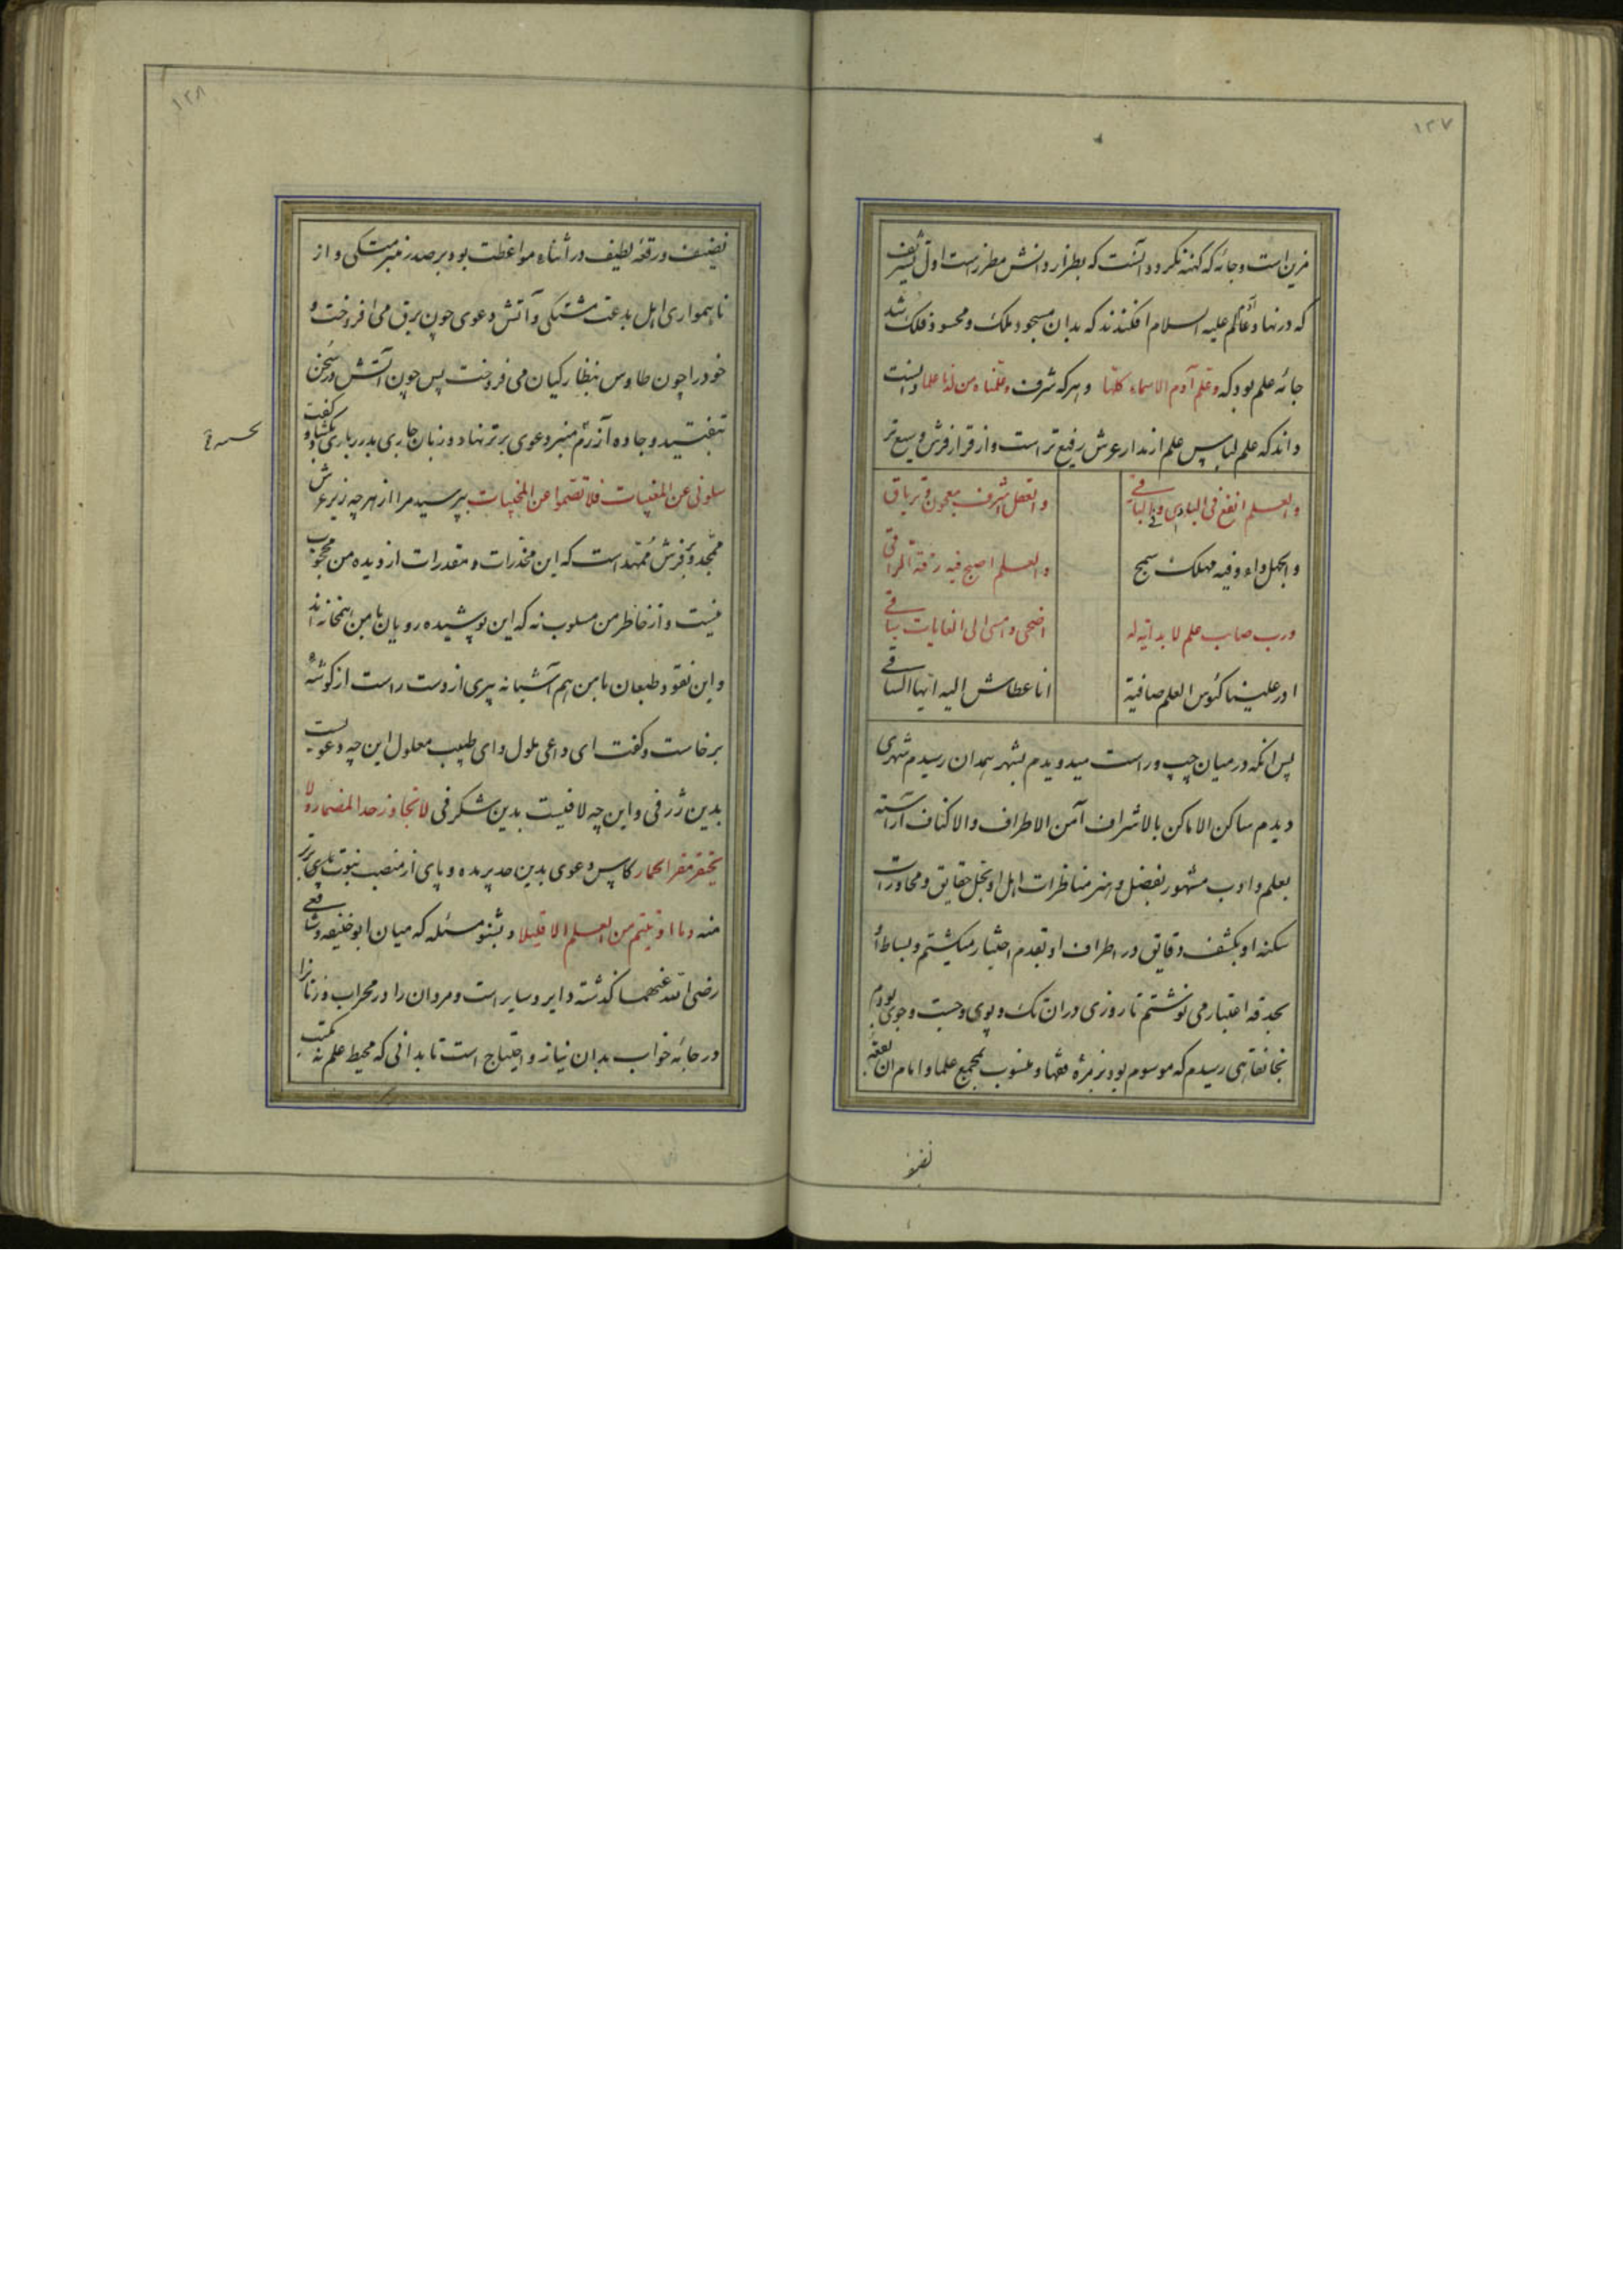 ۱۲۷
مزین است و جامه که کهنه نگردد آنست که بطراز دانش مطرز است اول تشریف
که در نهاد آدم علیه السلام افکندند که بدان مسجود ملک و محسود فلک شد
جامه علم بود که و علم آدم الاسماء کلها و هرکه شرف و علمناه من لدنا علما دانست
داند که علم لباس علم از مدار عرش رفیع تر است و از قرار فرش وسیع تر
والعلم انفع فی البادی و فی الباقی والعقل اشرف معجون و تریاق
والجهل داء و فیه مهلک سمج والعلم اصبح فیه رقیة الراقی
ورب صاحب علم لا بدایة له اضحی و امسی الی الغایات سباقی
ادر علینا کئوس العلم صافیة انا عطاش الیه ایها الساقی
پس آنکه در میان چپ و راست میدویدم بشهر همدان رسیدم شهری
دیدم ساکن الاماکن بالاشراف آمن الاطراف والاکناف آراسته
بعلم و ادب مشهور بفضل و هنر مناظرات اهل او بحل حقایق و محاورات
سکنه او بکشف دقایق در اطراف او بقدم اختیار میکشتم و بساط او
بحدقه اعتبار می نوشتم تا روزی دران تک و پوی و جست و جوی بودم
بخانقاهی رسیدم که موسوم بود بزمره فقها و منسوب بمجمع علما و امام ان بقعه
۱۲۸
نصیف و رقعه لطیف در اثناء مواعظت بود بر صدر منبر متکی و از
ناهمواری اهل بدعت مشتکی و آتش دعوی چون برق می افروخت و
خود را چون طاوس بنظارکیان می فروخت پس چون آتش در سخن
بتفتید و جاده آزرم منبر دعوی برتر نهاد و زبان جاری بدرر باری بکشاد و گفت
سلونی عن المغیبات فلا تصموا عن المخبیات بپرسید مرا از هر چه زیر عرش
ممجد و بر فرش ممهد است که این مخدرات و مقدرات از دیده من محجوب
نیست و از خاطر من مسلوب نه که این پوشیده رویان با من همخانه اند
و این نقود طبعان با من هم آشیانه پیری از دست راست از کوشه
برخاست و گفت ای داعی ملول و ای طبیب معلول این چه دعویست
بدین ژرفی و این چه لافیست بدین شکرفی لا تجاوز حد المضمار ولا
یحقر مقر الحمار کاپس دعوی بدین حد پر مده و پای از منصب نبوت برتر
منه و ما اوتیتم من العلم الا قلیلا و بشنو مسئله که میان ابوحنیفه و شافعی
رضی الله عنهما گذشته دایر و سایر است و مردان را در محراب و زنان را
در جامه خواب بدان نیاز و احتیاج است تا بدانی که محیط علم نه